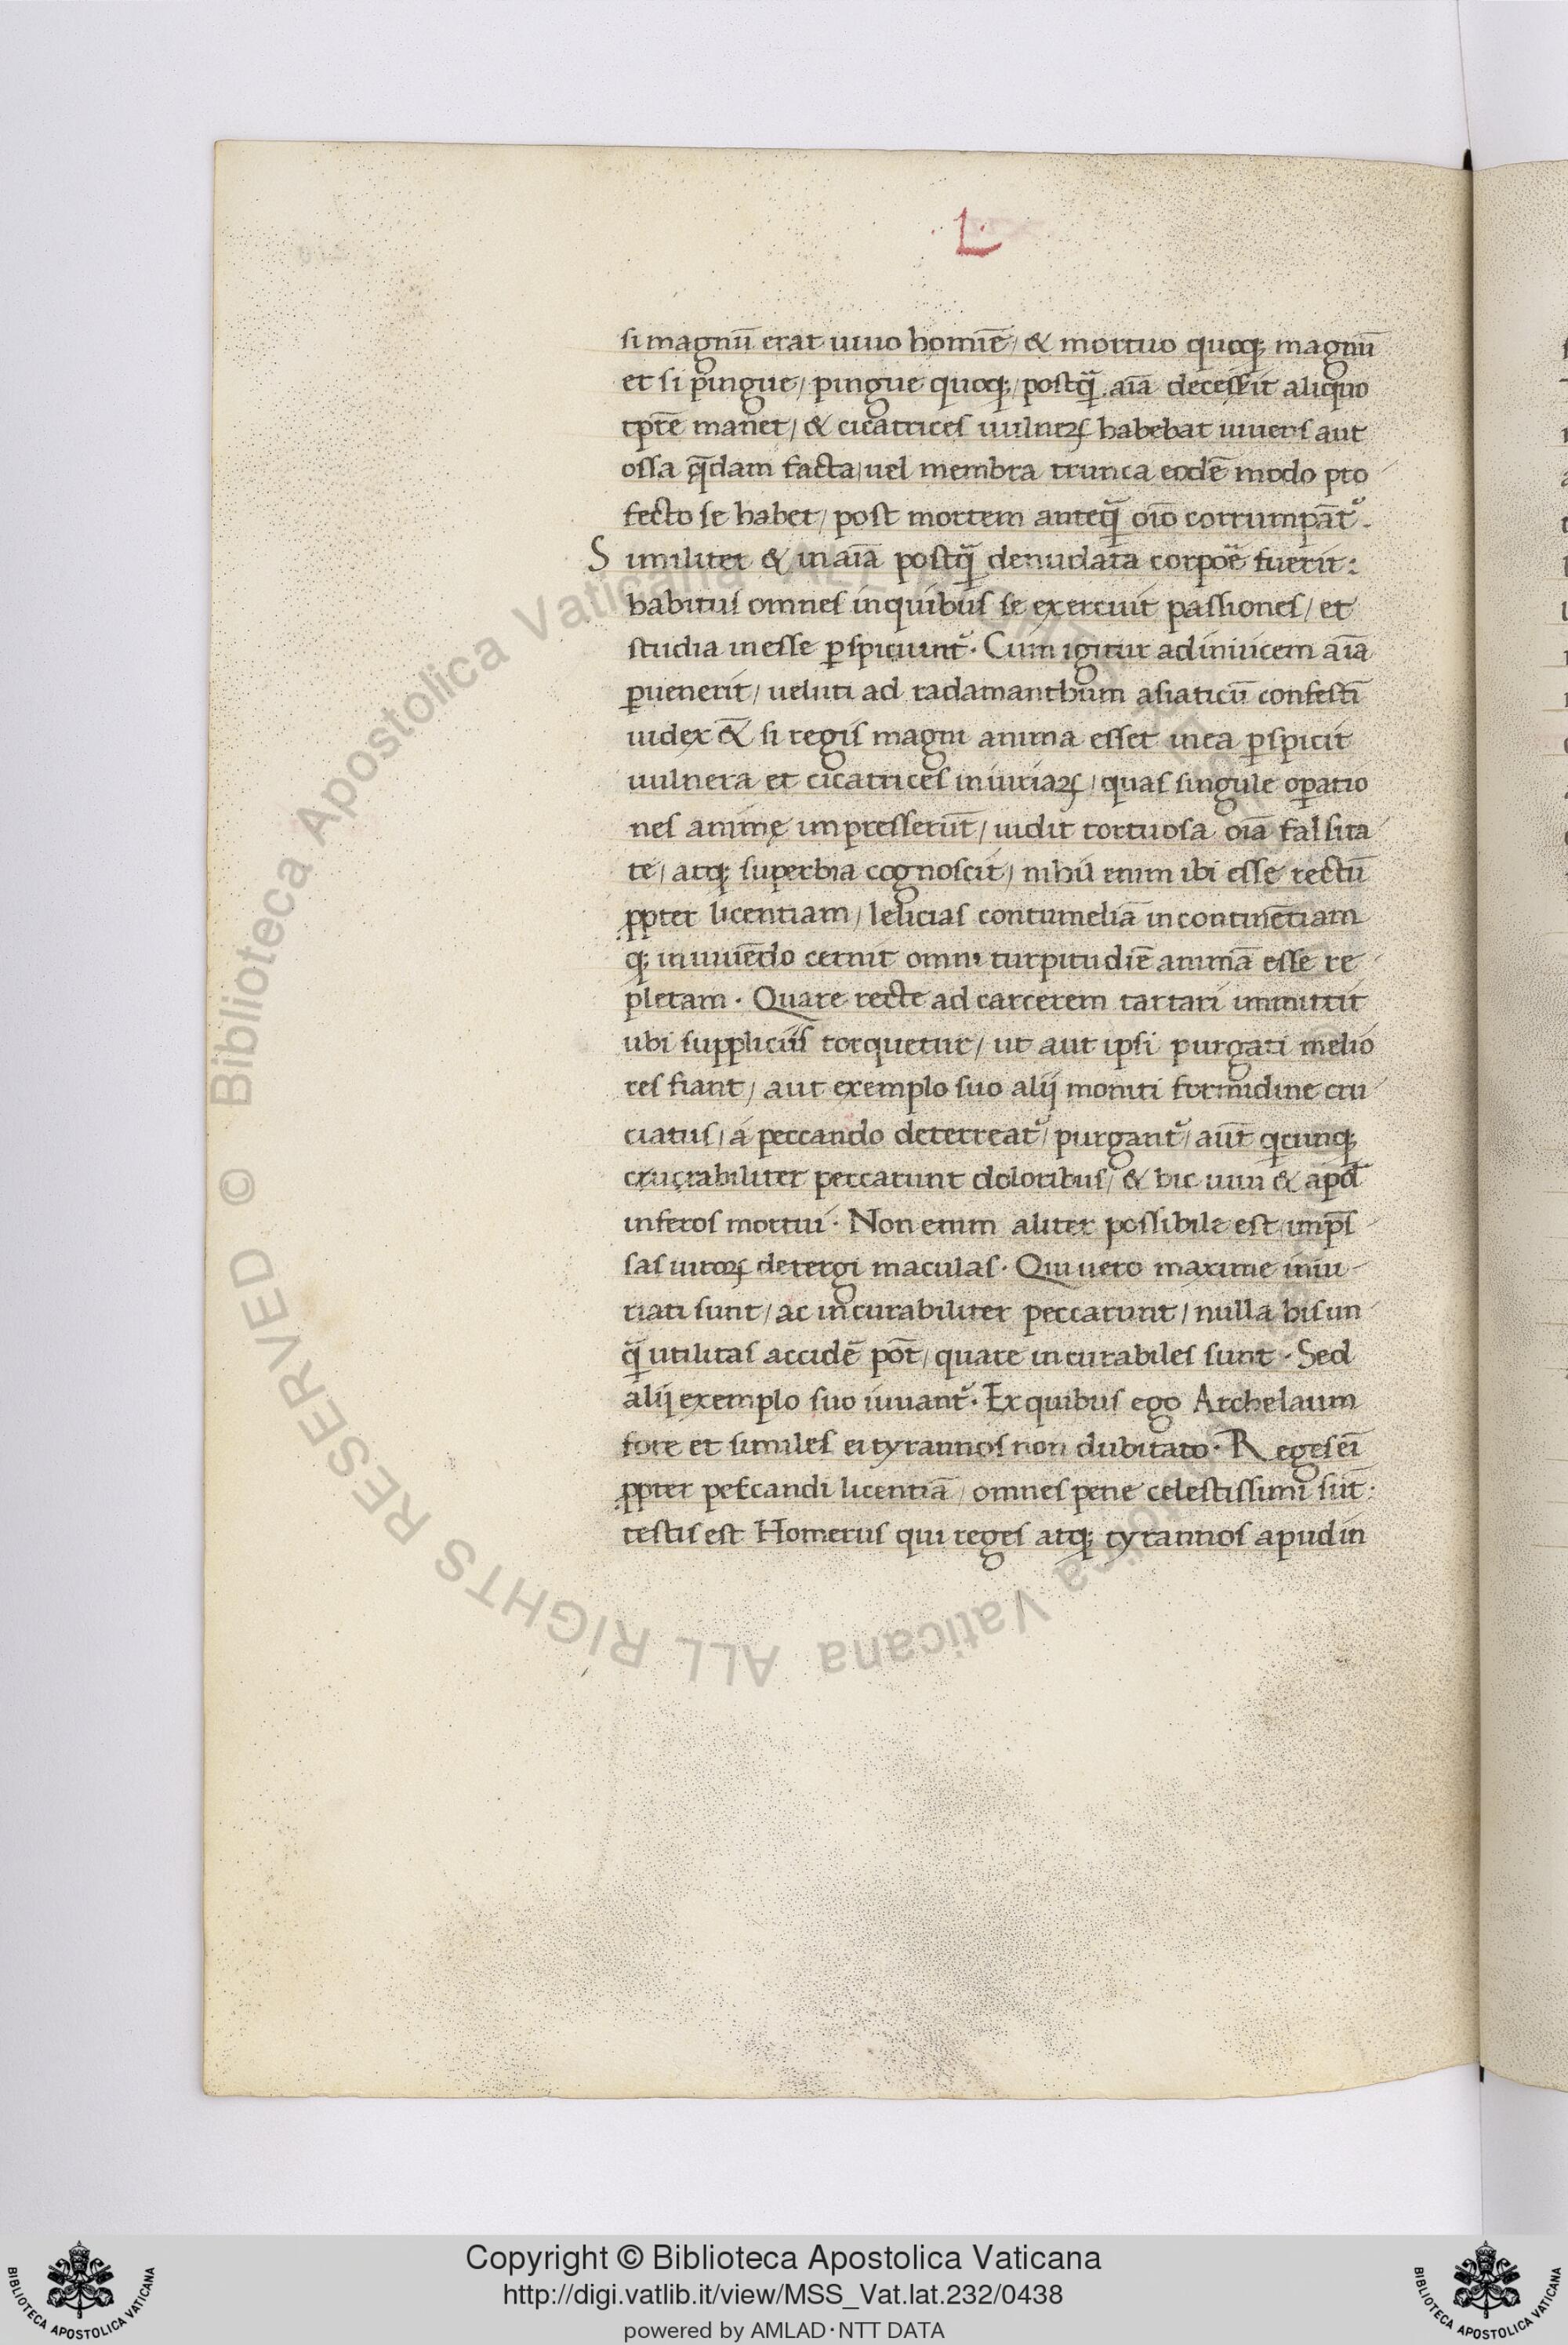 .L.
si magnū erat uiuo homīe / & mortuo quoq; magnū
et si pingue / pingue quoq; / postq̄ aīa decessit aliquo
tpr̄e manet / & cicatrices uulnerꝝ habebat uiuens aut
ossa q̄dam facta / uel membra trunca eodē modo pro
fecto se habet / post mortem anteq̄ oīo corrumpāt᷑.
Similiter & in aīa postq̄ denudata corpoē fuerit:
habitus omnes in quibus se exercuit passiones / et
studia inesse ꝑspiciunt᷑. Cum igitur ad iniucem aīa
ꝑuenerit / ueluti ad radamanthum asiaticū confestī
iudex &̄ si regis magni anima esset in ea ꝑspicit
uulnera et cicatrices iniuriaꝝ / quas singule oꝑatio
nes animę impresserūt / uidit tortuosa oīa falsita
te / atq; superbia cognoscit / nihil enim ibi esse rectū
ꝓpter licentiam / lelicias contumeliā incontinētiam
q; in uiuēdo cernit omni turpitudīe animā esse re
pletam. Quare recte ad carcerem tartari immittit
ubi suppliciis torquetur / ut aut ipsi purgati melio
res fiant / aut exemplo suo alij moniti formidine cru
ciatus / a peccando deterreat᷑ / purgant᷑ / aūt qcunq;
crucrabiliter peccarunt doloribus / & hic uiui & apd̄
inferos mortui. Non enim aliter possibile est imp̄s
sas uitioꝝ detergi maculas. Qui uero maxime iniu
riati sunt / ac incurabiliter peccarunt / nulla his un
q̄ utilitas accidē pōt / quare incurabiles sunt. Sed
alij exemplo suo iuuant᷑. Ex quibus ego Archelaum
fore et similes ei tyrannos non dubitato. Reges eī
ꝓpter peccandi licentiā / omnes pene celestissimi sūt:
testis est Homerus qui reges atq; tyrannos apud in
© Biblioteca Apostolica Vaticana ALL RIGHTS RESERVED
Copyright © Biblioteca Apostolica Vaticana
http://digi.vatlib.it/view/MSS_Vat.lat.232/0438
powered by AMLAD·NTT DATA
BIBLIOTECA APOSTOLICA VATICANA
BIBLIOTECA APOSTOLICA VATICANA